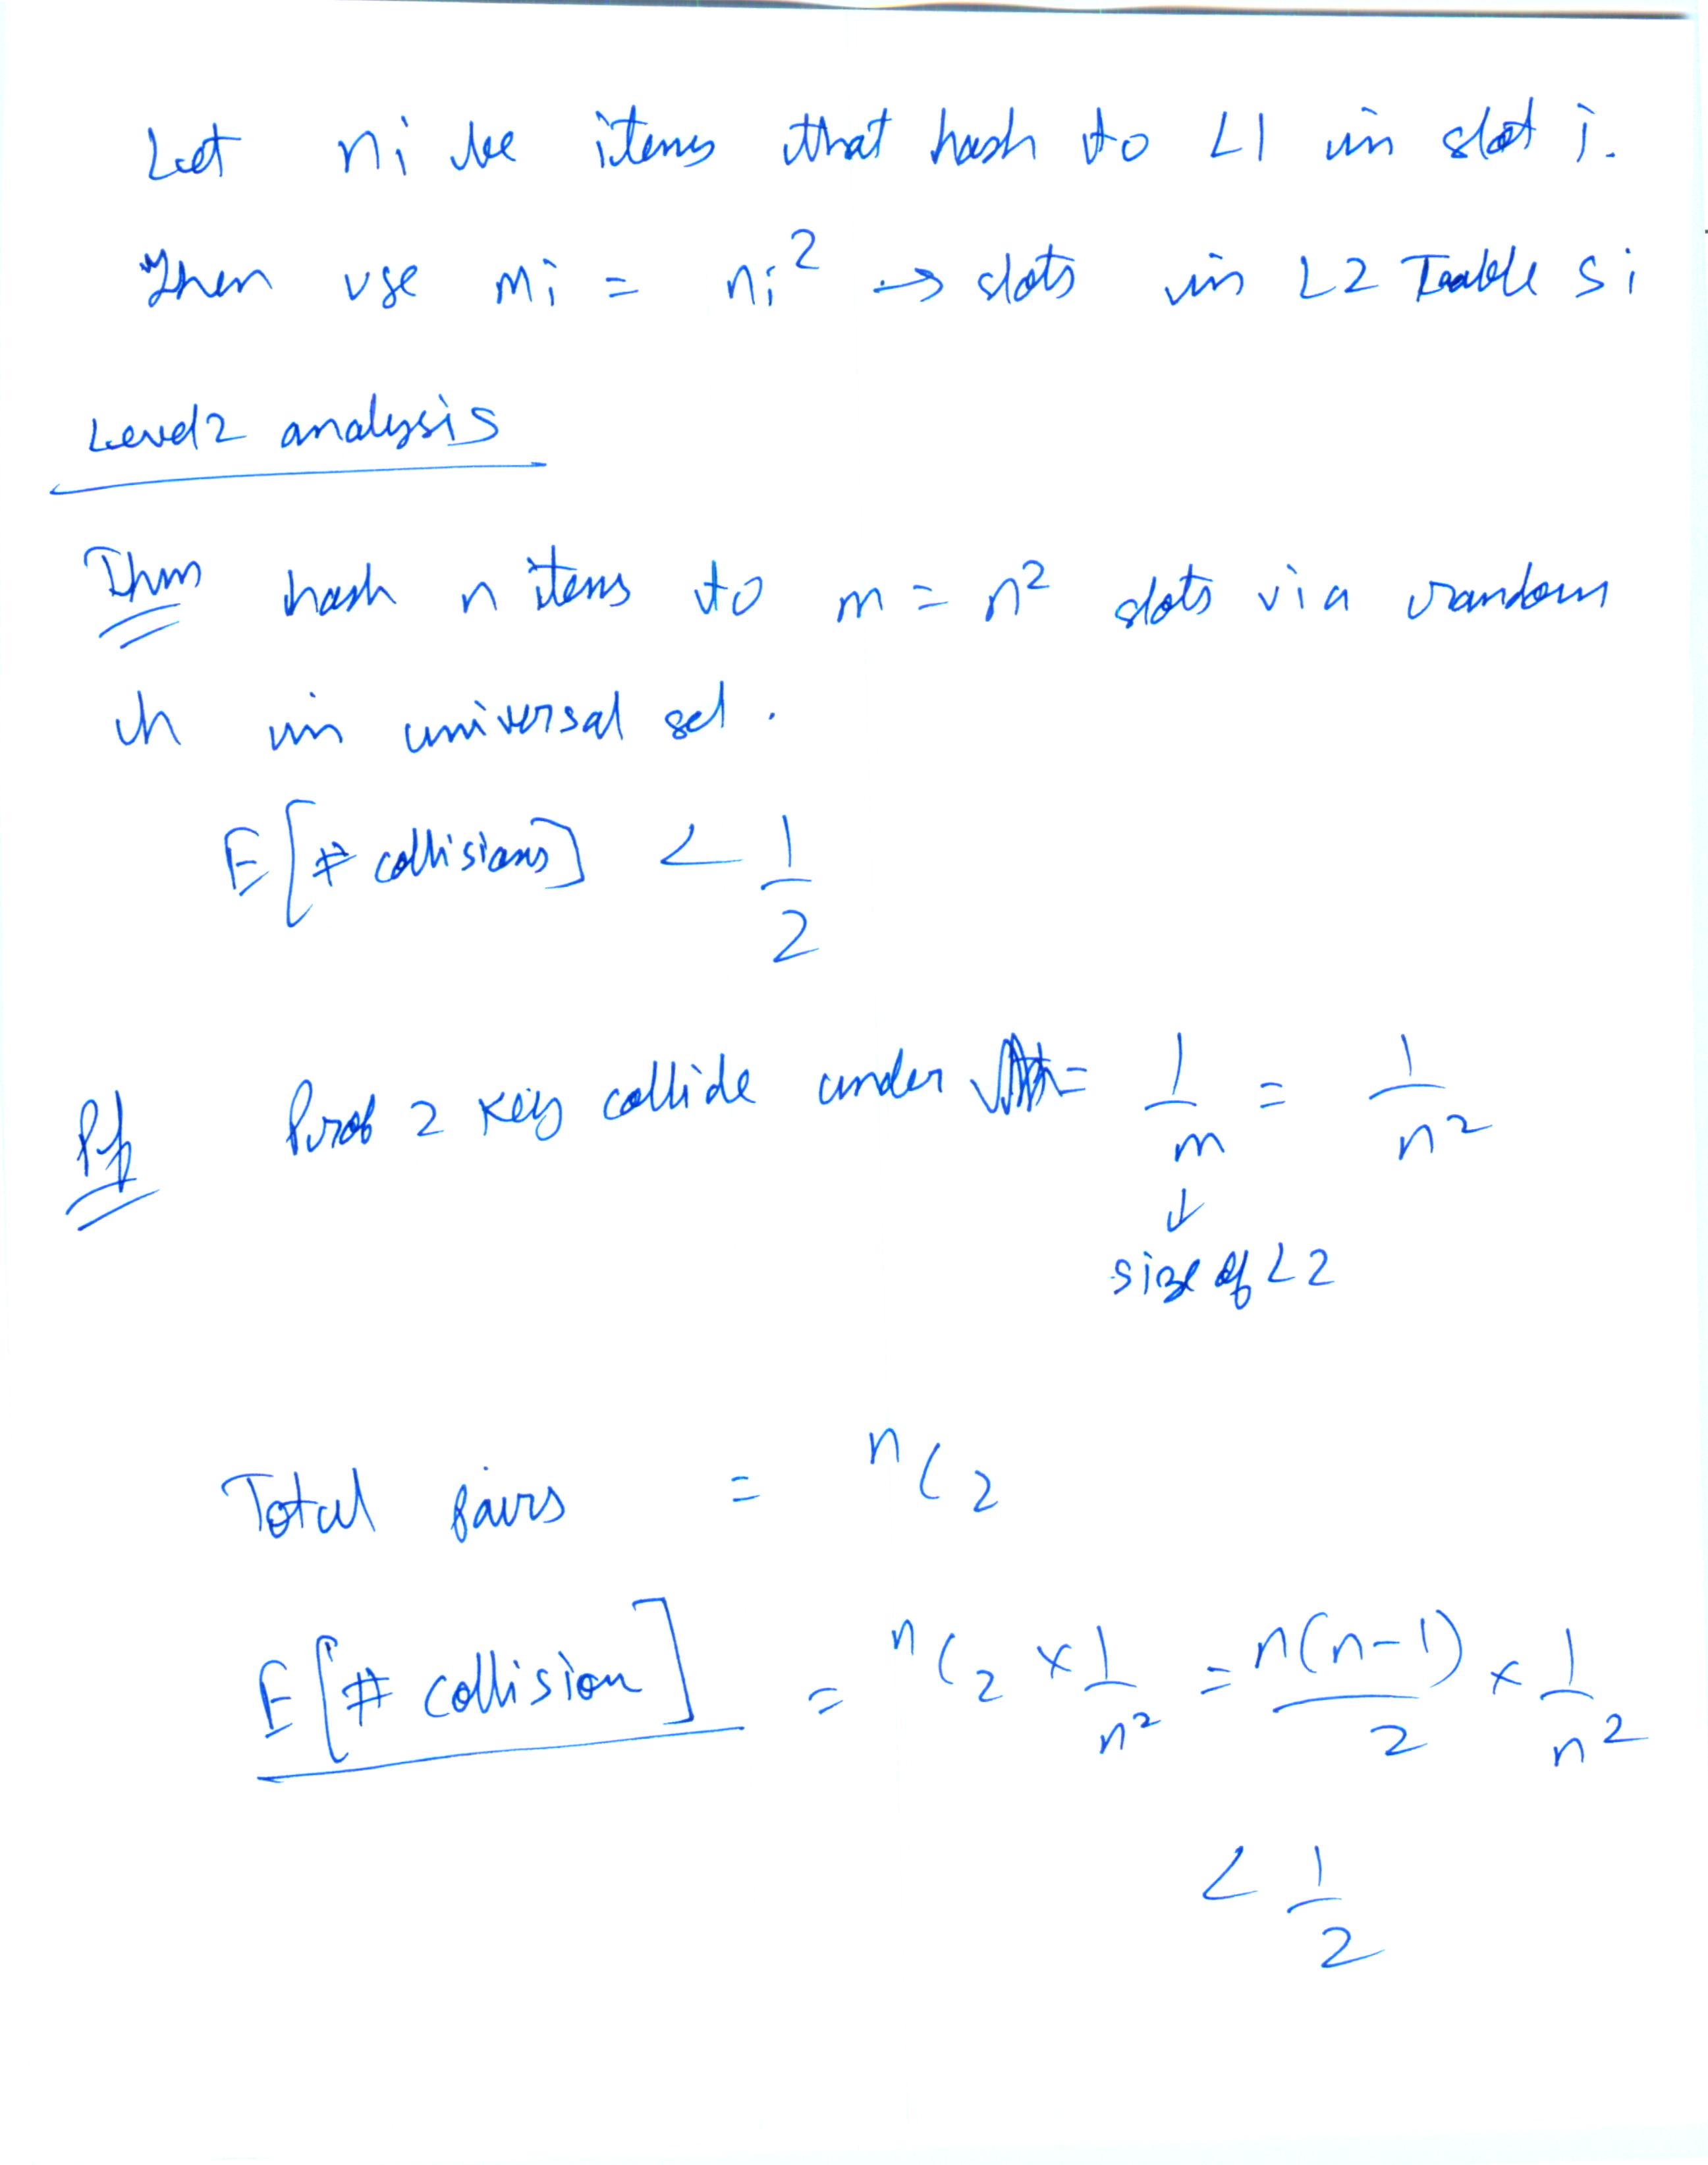 Let ni be items that hash to L1 in slot i.
Then use mi = ni² → slots in L2 Table Si
Level2 analysis
Thm hash n items to m = n² slots via random
h in universal set.
E[# collisions] < 1/2
Pf Prob 2 keys collide under = 1/m = 1/n²
↓
size of L2
Total pairs = ⁿC₂
E[# collision] = ⁿC₂ × 1/n² = n(n-1)/2 × 1/n²
< 1/2